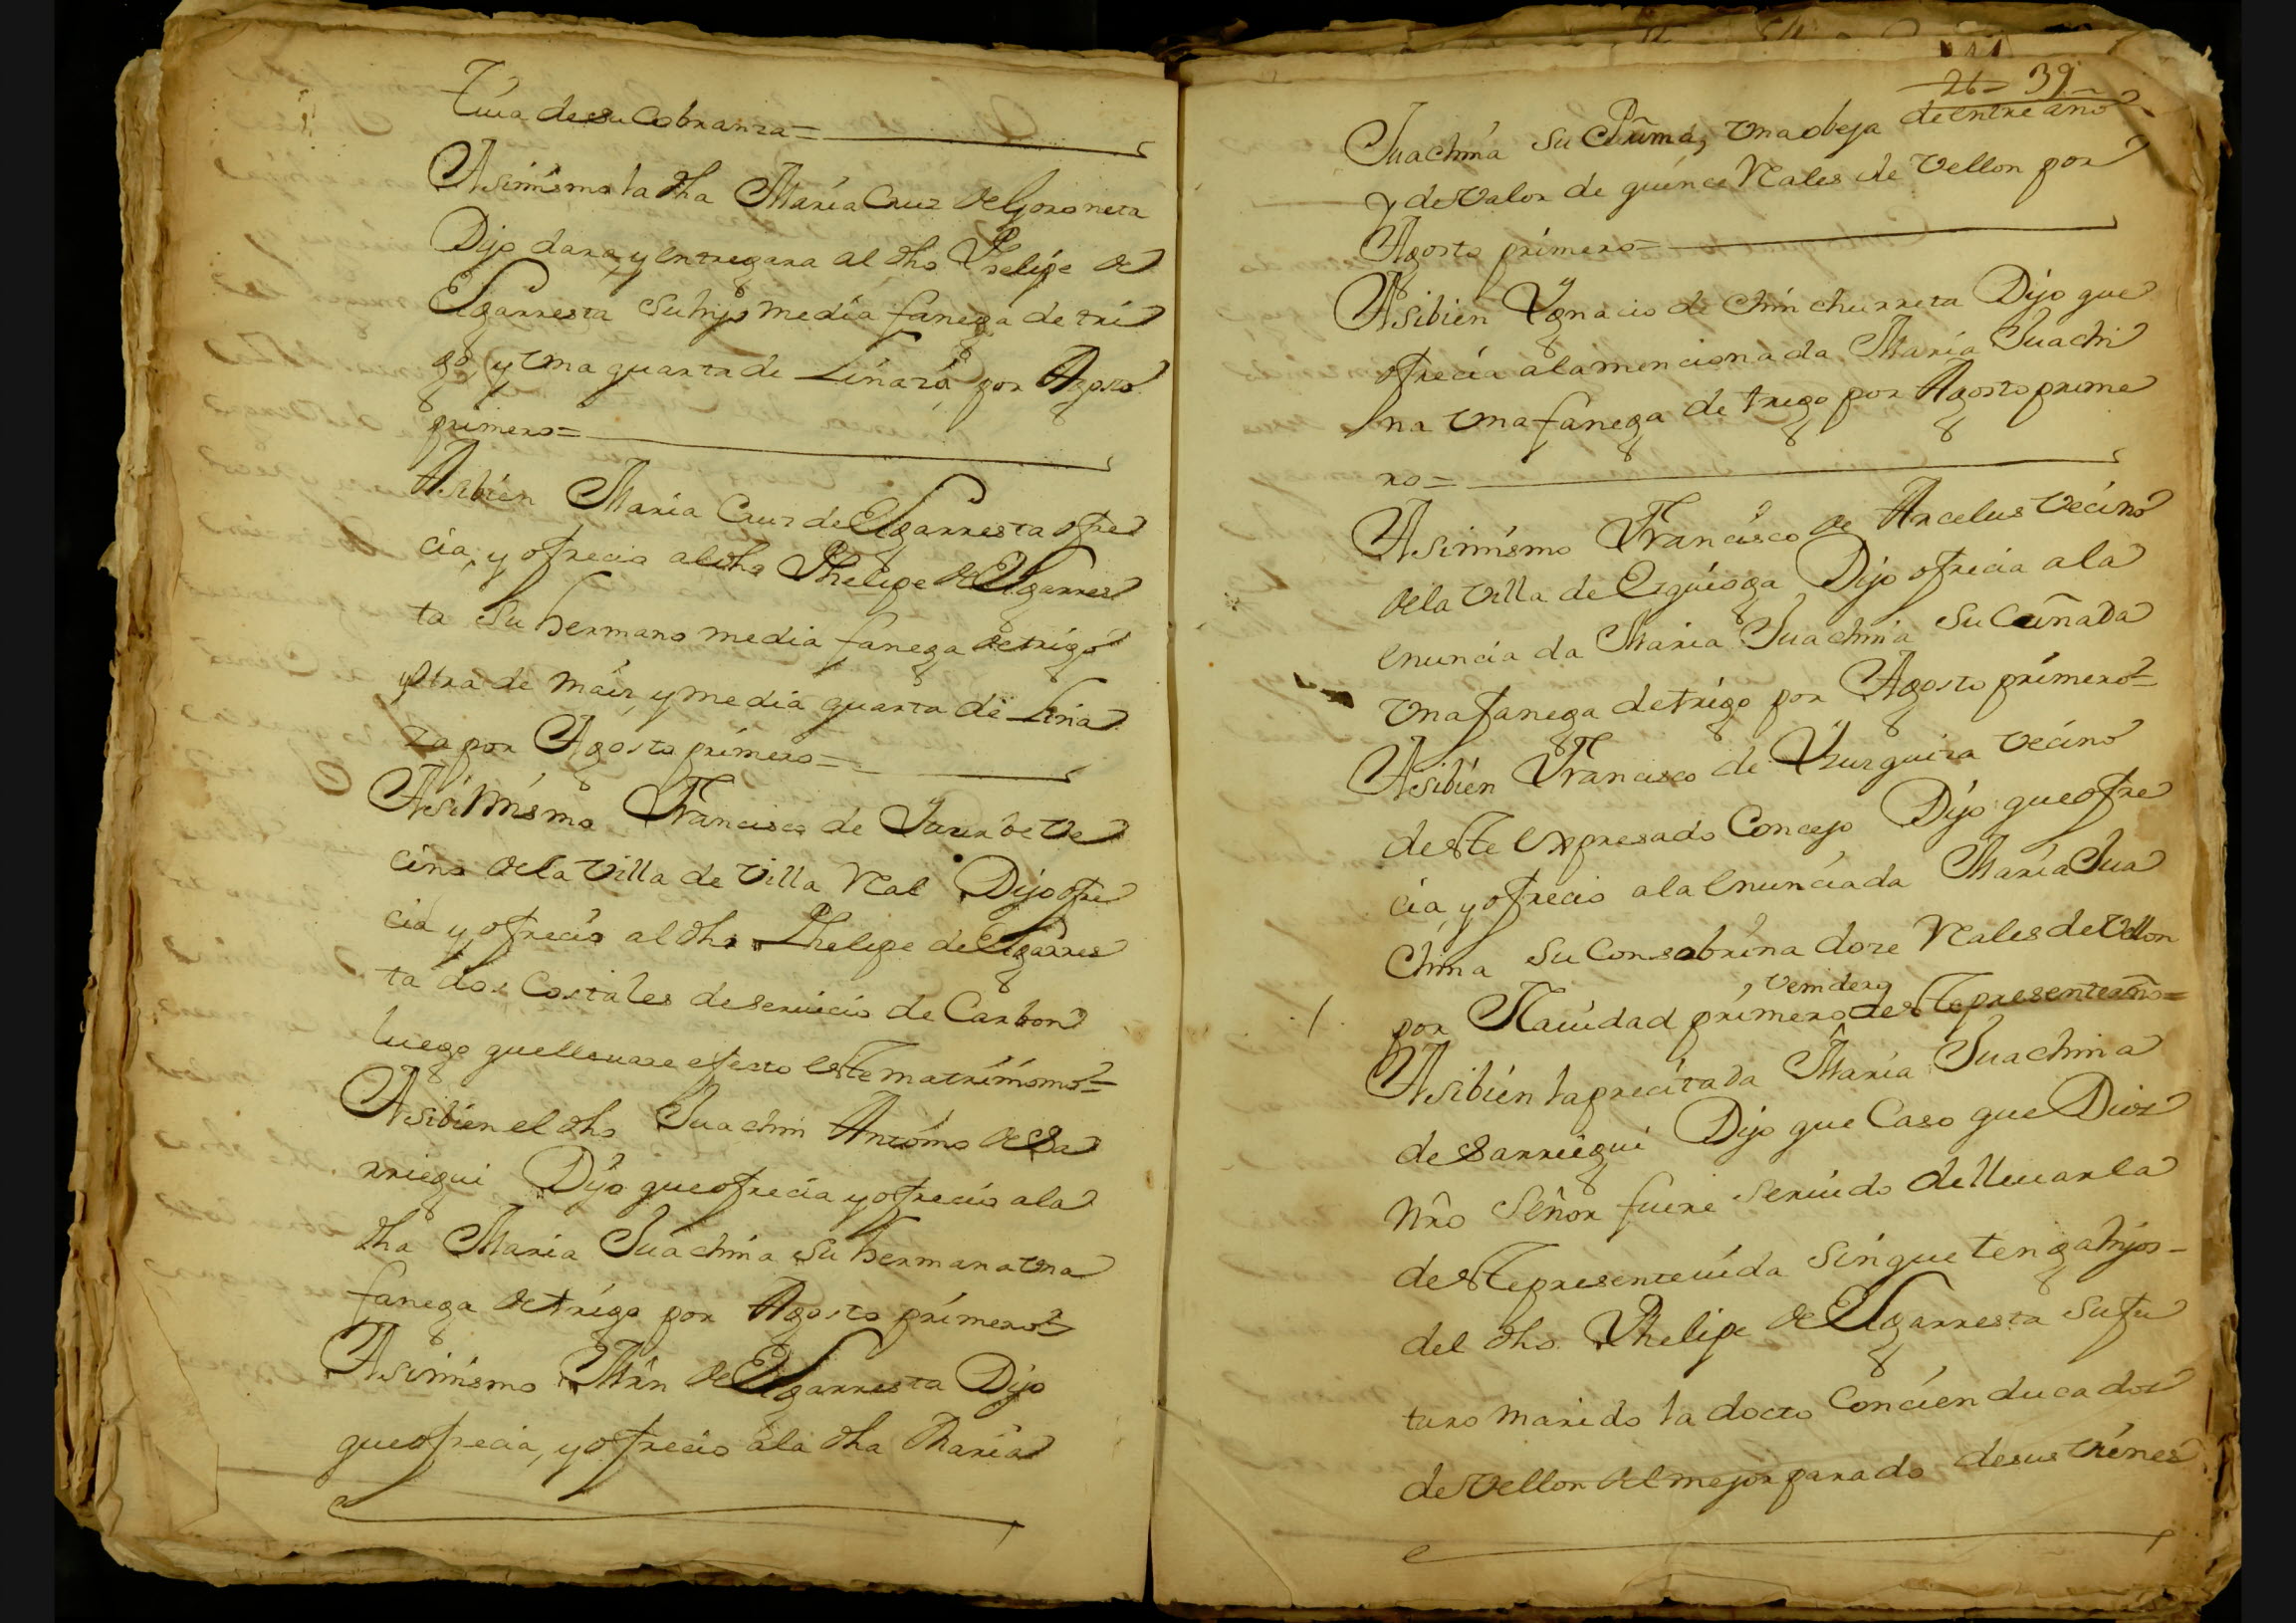 tiua de su Cobranza=
Asimismo la dha Maria Cruz de Goroneta
Dijo dara, y entregara al dho Phelipe de
Elgarresta Su hijo media fanega de tri
go y Una quarta de Linaza, por Agosto
primero=
Asibien Maria Cruz de Elgarresta ofre
cia, y ofrecio al dho Phelipe de Elgarres
ta Su hermano media fanega de trigo
y otra de maiz, y media quarta de Lina
za por Agosto primero=
Asimismo Francisco de Ve
cino de la Villa de Villa Real Dijo ofre
cia y ofrecio al dho Phelipe de Elgarres
ta dos Costales de seruicio de Carbon
luego que lleuare efecto este matrimonio=
Asibien el dho Juachin Antonio de Sa
rriegui Dijo que ofrecia y ofrecio a la
dha Maria Juachina Su hermana Una
fanega de trigo por Agosto primero=
Asimismo Mrn de Elgarresta Dijo
que ofrecia, y ofrecio a la dha Maria
26= 39
Juachina Su Prima, Una obeja de entre año
y de Valor de quince Reales de Vellon por
Agosto primero=
Asibien Ygnacio de Chinchurreta Dijo que
ofrecia a la mencionada Maria Juachi
na Una fanega de trigo por Agosto prime
ro=
Asimismo Francisco de Arcelus Vecino
de la Villa de Ezquioga Dijo ofrecia a la
enunciada Maria Juachina Su Cuñada
Una fanega de trigo por Agosto primero=
Asibien Francisco de Vecino
de este expresado Concejo Dijo que ofre
cia, y ofrecio a la enunciada Maria Jua
china Su Consobrina doze Reales de Vellon
venidero
por Nauidad primero de este presente año=
Asibien la precitada Maria Juachina
de Sarriegui Dijo que Caso que Dios
Nro Señor fuere Seruido de lleuarla
de este presente uida Sin que tenga hijos
del dho Phelipe de Elgarresta Su fu
turo marido la docto Con cien ducados
de Vellon del mejor parado de sus Vienes